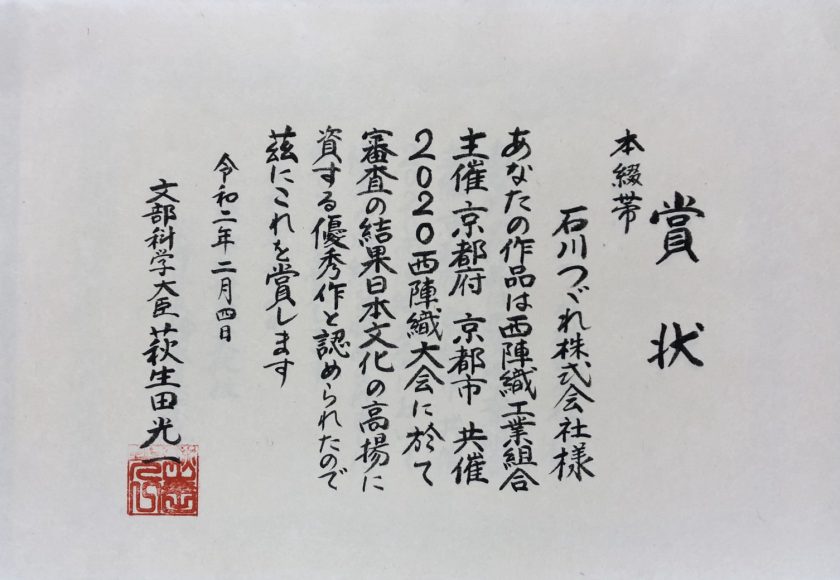 賞状
本綴帯
石川つづれ株式会社様
あなたの作品は西陣織工業組合
主催 京都府 京都市 共催
2020西陣織大会に於て
審査の結果日本文化の高揚に
資する優秀作と認められたので
茲にこれを賞します
令和二年二月四日
文部科学大臣 萩生田光一